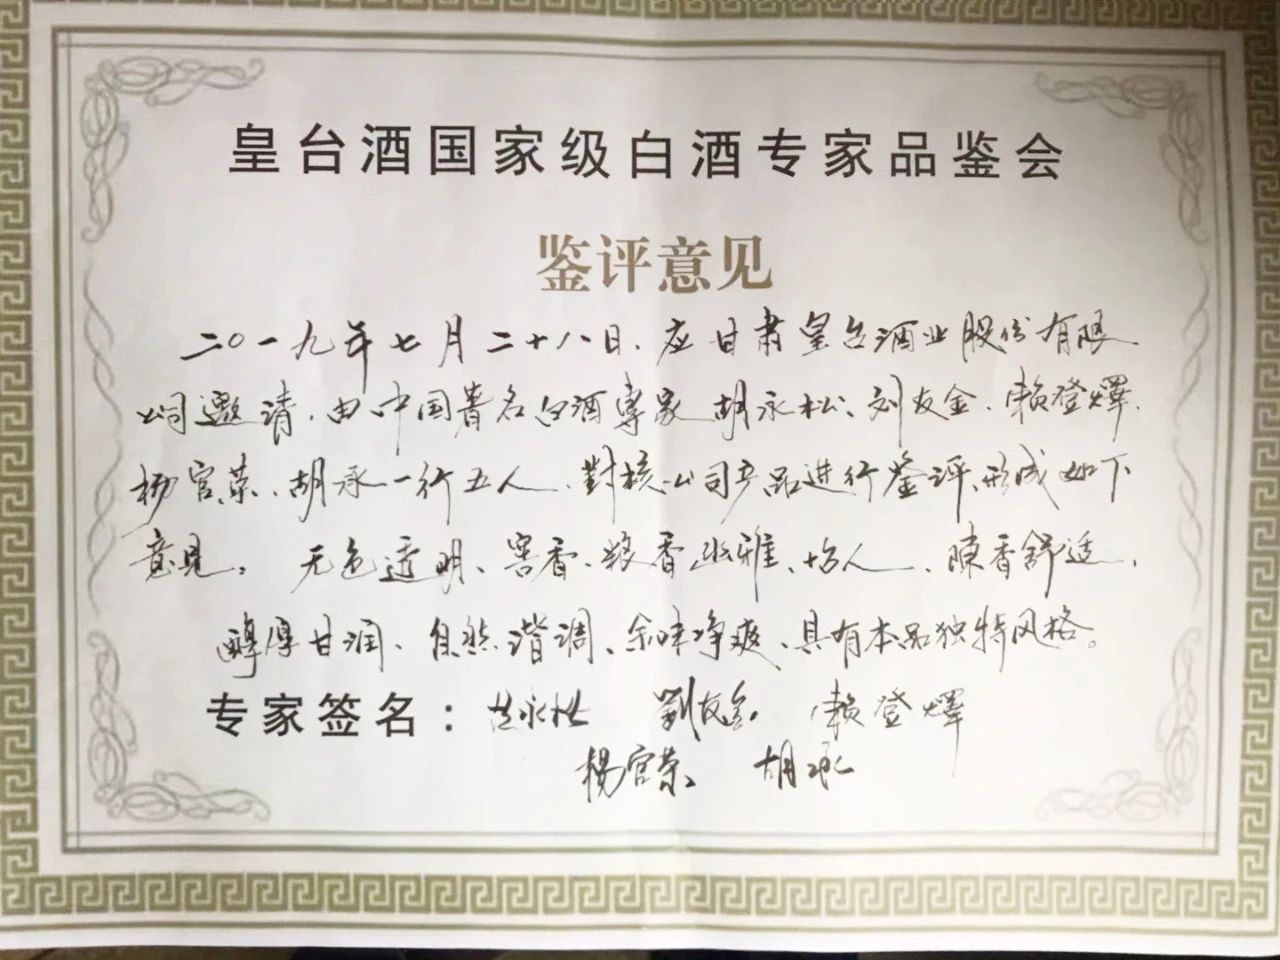 皇台酒国家级白酒专家品鉴会
鉴评意见
二〇一九年七月二十八日、应甘肃皇台酒业股份有限
公司邀请、由中国著名白酒專家胡永松、刘友金、赖登燡、
杨官荣、胡承一行五人、對核公司产品进行鉴评、形成如下
意见。无色透明、窖香、粮香幽雅、怡人、陳香舒适、
醇厚甘润、自然谐调、余味净爽、具有本品独特风格。
专家签名：胡永松 劉友金 赖登燡
杨官荣 胡承